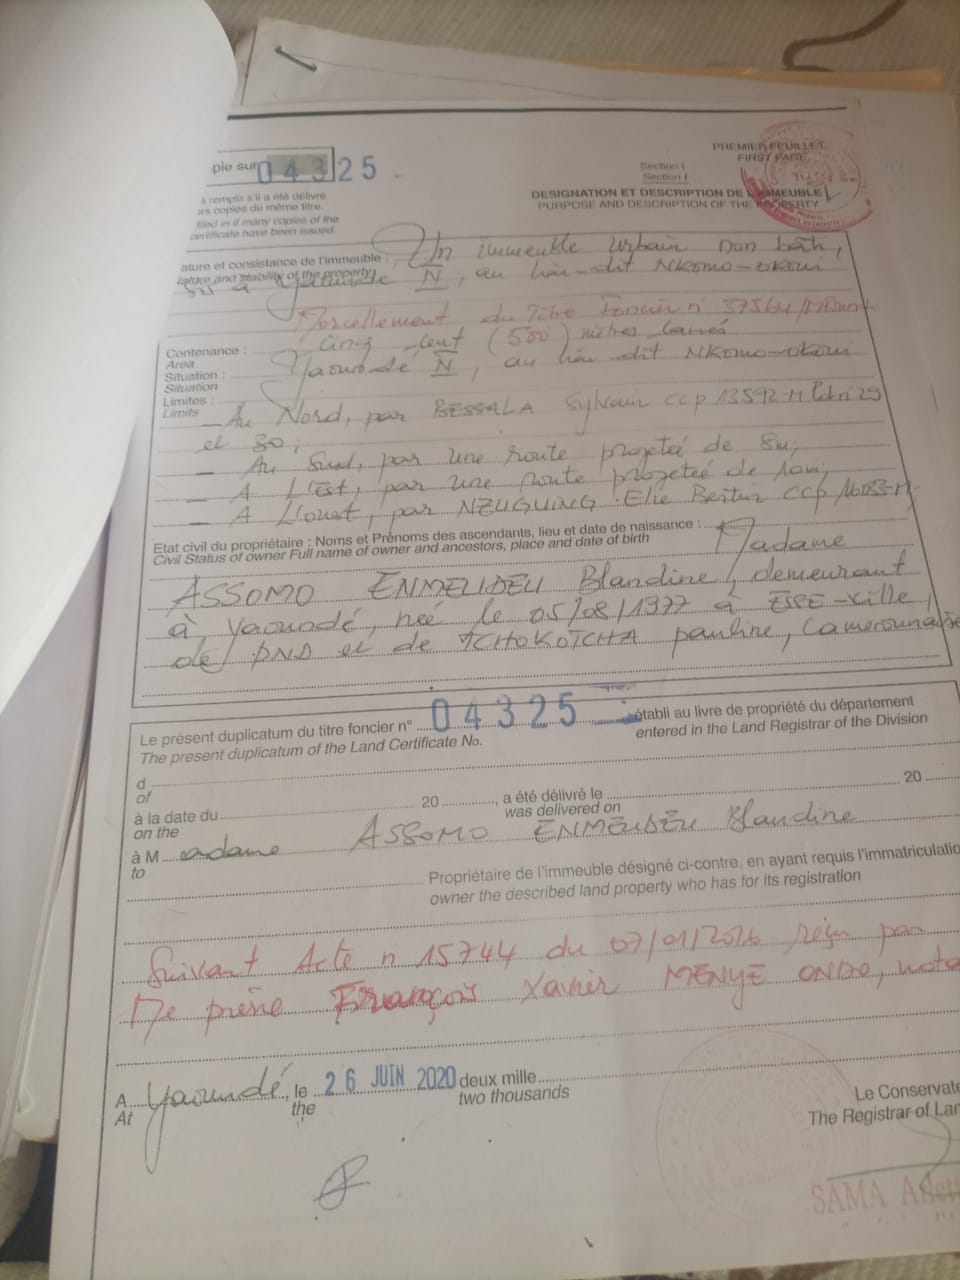 pie sur 04325
PREMIER FEUILLET
FIRST PAGE
Section I
Section I
à remplir s'il a été délivré
rs copies du même titre.
filled in if many copies of the
certificate have been issued.
DESIGNATION ET DESCRIPTION DE L'IMMEUBLE
PURPOSE AND DESCRIPTION OF THE PROPERTY
ature et consistance de l'immeuble : Un immeuble urbain non bâti,
ature and stability of the property) sis à Yaoundé N, au lieu-dit Nkomo-okoui
Morcellement du Titre Foncier n° 37564/Mfoundi
Contenance : Cinq cent (500) mètres carrés
Area
Situation : Yaoundé N, au lieu dit Nkomo-okoui
Situation
Limites :
Limits
- Au Nord, par BESSALA Sylvain CCP 13592-M
et 30;
- Au Sud, par une route projeteé de 8m;
- A L'Est, par une route projeteé de 10m;
- A L'ouest, par NZUGUING Elie Bertin CCP
Etat civil du propriétaire : Noms et Prénoms des ascendants, lieu et date de naissance : Madame
Civil Status of owner Full name of owner and ancestors, place and date of birth
ASSOMO ENMEUDEU Blandine, demeurant
à Yaoundé, née le 05/08/1977 à ESSE-ville,
de PND et de TCHOKOTCHA pauline, Camerounaise
Le présent duplicatum du titre foncier n° 04325 établi au livre de propriété du département
The present duplicatum of the Land Certificate No. entered in the Land Registrar of the Division
d
of
à la date du 20 , a été délivré le 20
on the was delivered on
à Madame ASSOMO ENMEUDEU Blandine
to
Propriétaire de l'immeuble désigné ci-contre, en ayant requis l'immatriculatio
owner the described land property who has for its registration
Suivant Acte n 15744 du 07/01/2016, reçu par
Me François Xavier MENYE ONDO, nota
A Yaoundé, le 26 JUIN 2020 deux mille
At the two thousands
Le Conservate
The Registrar of Lan
SAMA Arlett